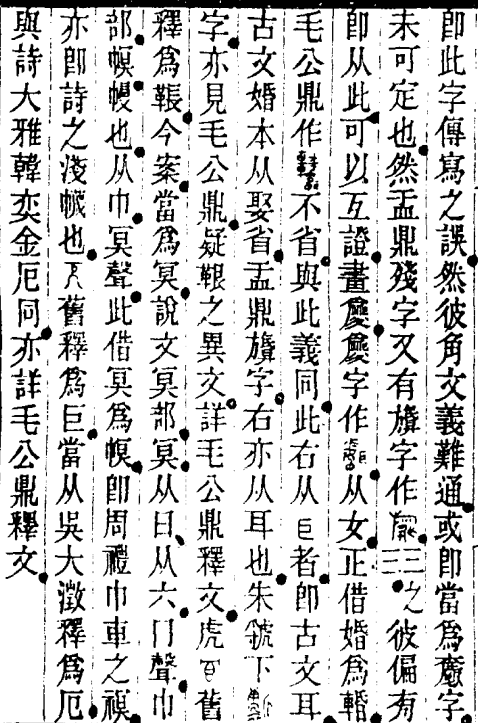 卽此字傳寫之誤然彼角文義難通或卽當爲字
未可定也然盂鼎殘字又有字作三三之彼偏有
卽从此可以互證畫字作从女正借婚爲
毛公鼎作不省與此義同此右从者卽古文耳
古文婚本从娶省盂鼎字右亦从耳也朱虢下
字亦見毛公鼎疑之異文詳毛公鼎釋文虎舊
釋爲今案當爲冥說文冥部冥从日从六冂聲巾
部幎幔也从巾冥聲此借冥爲幎卽周禮巾車之𧜀
亦卽詩之淺幭也舊釋爲巨當从吳大澂釋爲厄
與詩大雅韓奕金厄同亦詳毛公鼎釋文